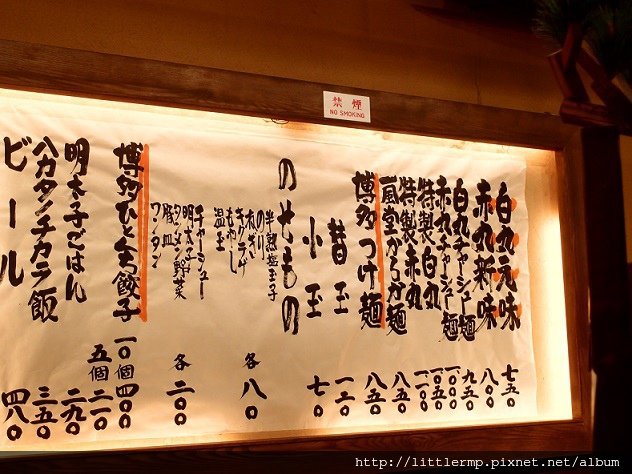 禁煙
NO SMOKING
白丸元味 七五〇
赤丸新味 八〇〇
白丸チャーシュー麺 九五〇
赤丸チャーシュー麺 一〇〇〇
特製白丸 一〇五〇
特製赤丸 一一〇〇
一風堂からか麺 八五〇
博多つけ麺 八五〇
替玉 一二〇
小玉 七〇
のせもの
半熟塩玉子
のり
きくらげ
もやし
温玉
各八〇
チャーシュー
明太子
タンメン野菜
ワンタン
各二〇〇
博多ひと口餃子 一〇個四〇〇
五個二一〇
明太子ごはん 二九〇
ハカタンチカラ飯 三五〇
ビール 四八〇
http://littlermp.pixnet.net/album